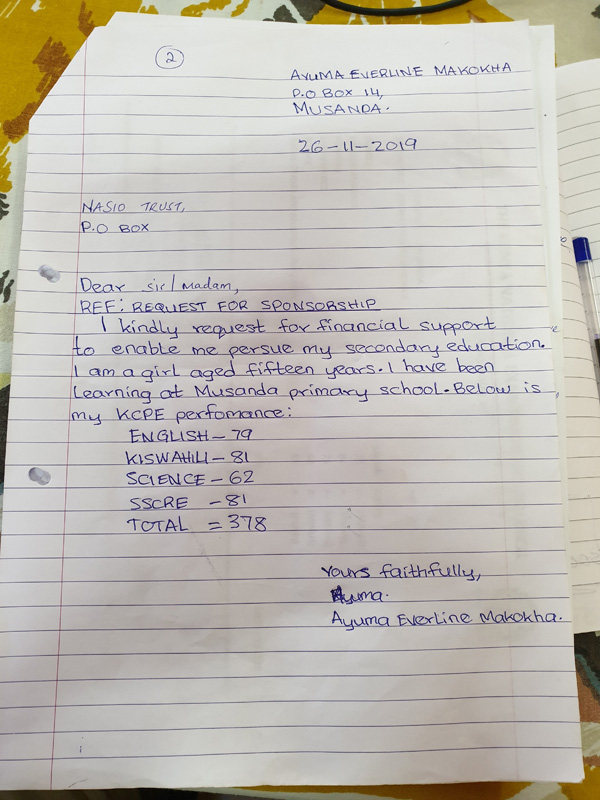 2
AYUMA EVERLINE MAKOKHA
P.O BOX 14,
MUSANDA.
26-11-2019
NASIO TRUST,
P.O BOX
Dear sir/Madam,
REF: REQUEST FOR SPONSORSHIP
I kindly request for financial support
to enable me persue my secondary education.
I am a girl aged fifteen years. I have been
Learning at Musanda primary school. Below is
my KCPE perfomance:
ENGLISH - 79
KISWAHILI - 81
SCIENCE - 62
SSCRE - 81
TOTAL = 378
Yours faithfully,
Ayuma.
Ayuma Everline Makokha.